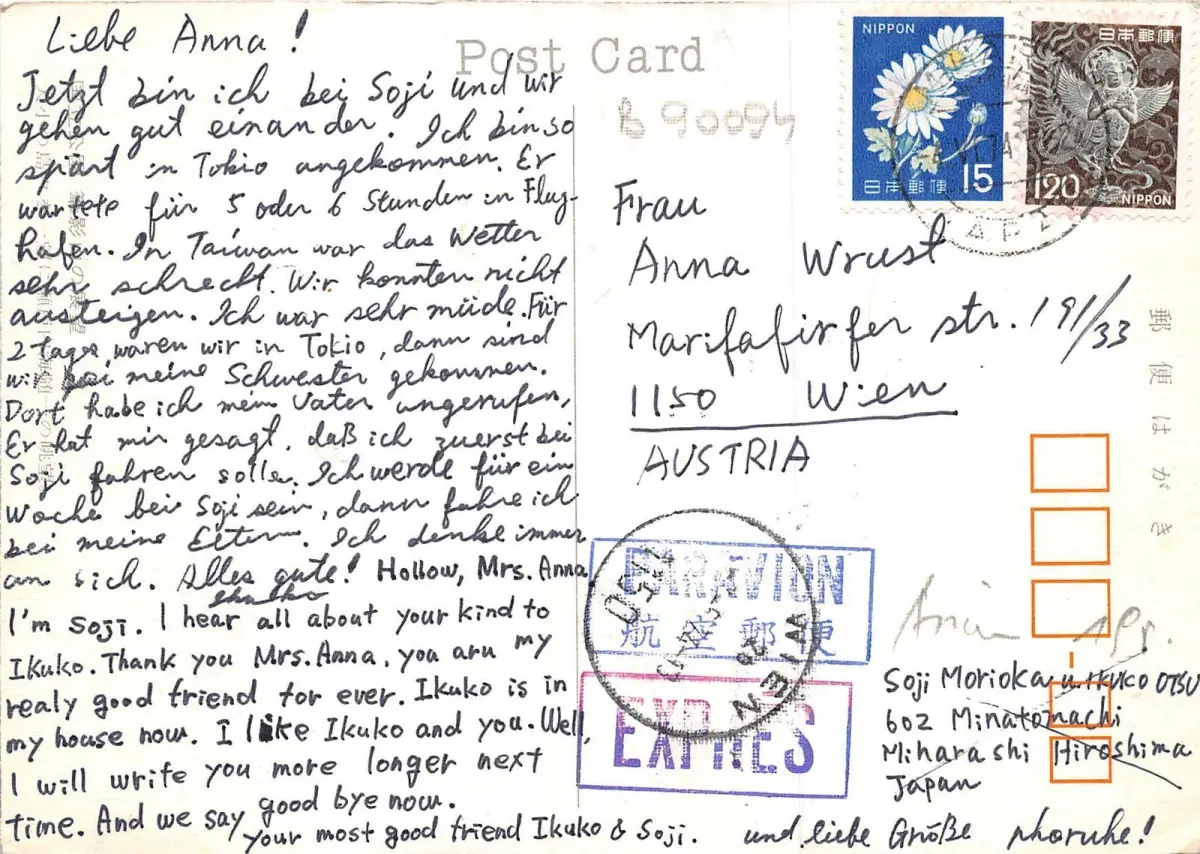 Liebe Anna!
Jetzt bin ich bei Soji und wir
gehen gut einander. Ich bin so
spärt in Tokio angekommen. Er
wartete für 5 oder 6 Stunden in Flug-
hafen. In Taiwan war das Wetter
sehr schrecht. Wir konnten nicht
austeigen. Ich war sehr müde. Für
2 tage waren wir in Tokio, dann sind
wir bei meine Schwester gekommen.
Dort habe ich mein Vater angerufen,
Er hat mir gesagt, daß ich zuerst bei
Soji fahren solle. Ich werde für ein
Woche bei Soji sein, dann fahre ich
bei meine Eltern. Ich denke immer
an sich. Alles gute! Hollow, Mrs. Anna
I'm Soji. I hear all about your kind to
Ikuko. Thank you Mrs. Anna, you aru my
realy good friend for ever. Ikuko is in
my house now. I like Ikuko and you. Well,
I will write you more longer next
time. And we say good bye now.
your most good friend Ikuko & Soji. und liebe Größe
Post Card
B 90094
NIPPON
日本郵便 15
日本郵便
120 NIPPON
Frau
Anna Wrust
Marifafirfer str. 191/33
1150 Wien
AUSTRIA
郵便はがき
PAR AVION
航空郵便
EXPRÈS
1150 WIEN
Soji Morioka u. IKUKO OTSU
602 Minatomachi
Miharashi Hiroshima
Japan